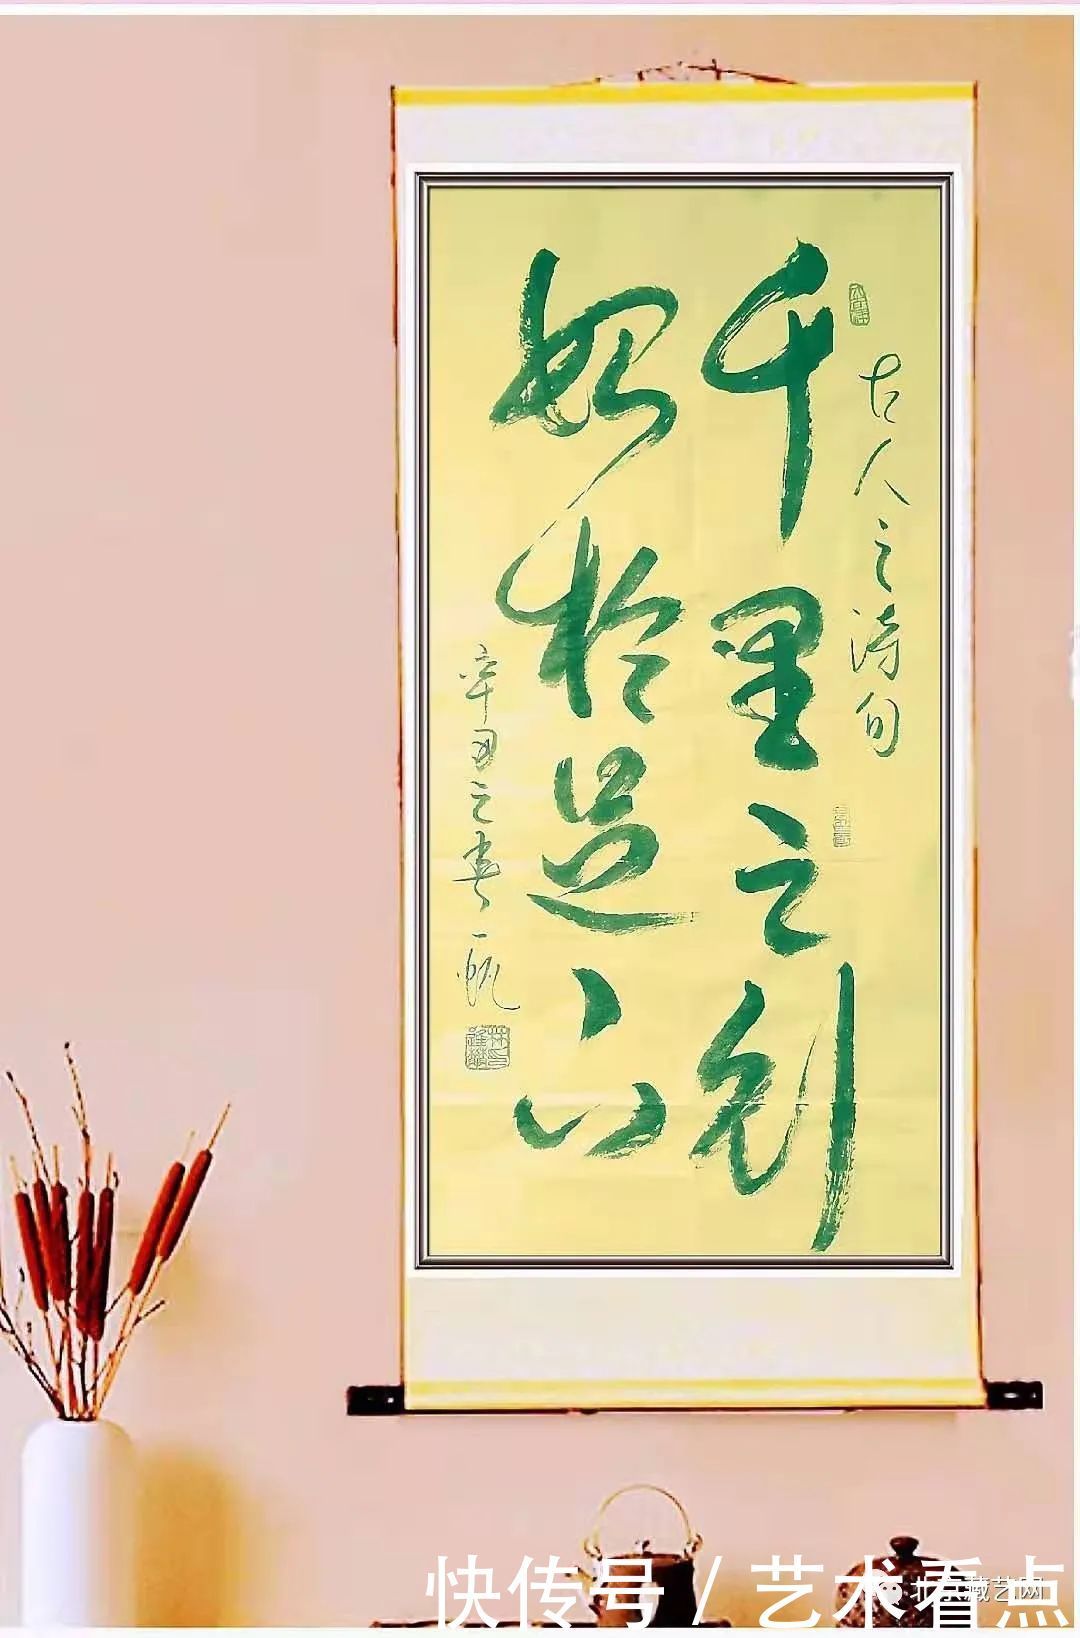 古人之诗句
千里之行
始於足下
辛丑之春一
快传号 / 艺术看点
北京藏艺网